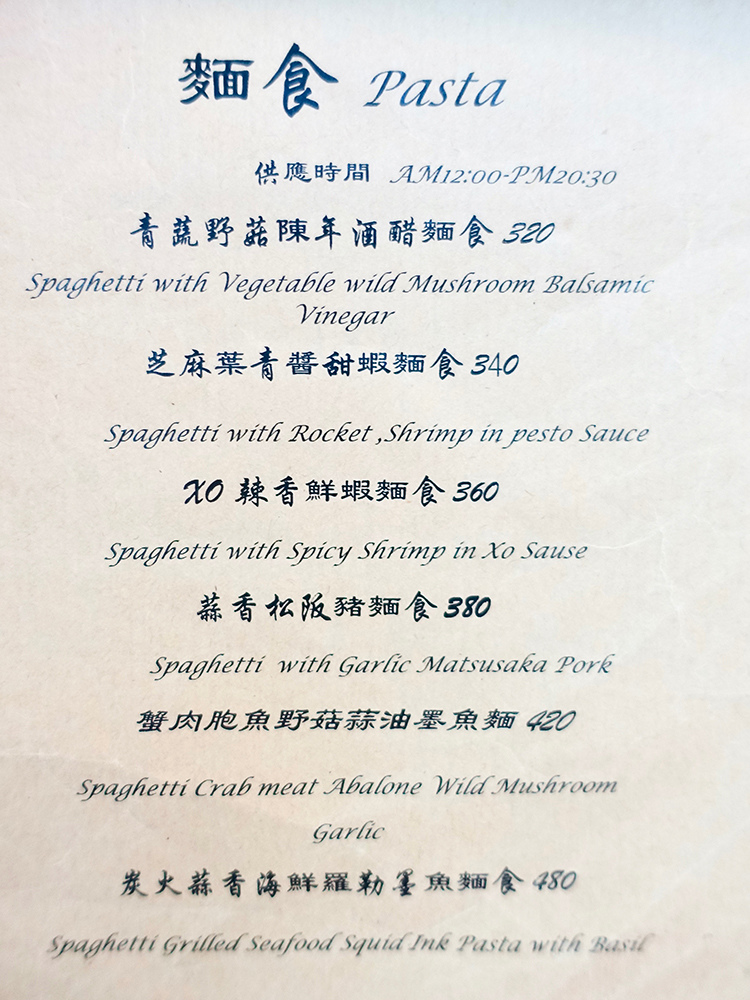 麵食 Pasta
供應時間 AM12:00-PM20:30
青蔬野菇陳年酒醋麵食 320
Spaghetti with Vegetable wild Mushroom Balsamic
Vinegar
芝麻葉青醬甜蝦麵食 340
Spaghetti with Rocket ,Shrimp in pesto Sauce
XO 辣香鮮蝦麵食 360
Spaghetti with Spicy Shrimp in Xo Sause
蒜香松阪豬麵食 380
Spaghetti with Garlic Matsusaka Pork
蟹肉胞魚野菇蒜油墨魚麵 420
Spaghetti Crab meat Abalone Wild Mushroom
Garlic
炭火蒜香海鮮羅勒墨魚麵食 480
Spaghetti Grilled Seafood Squid Ink Pasta with Basil